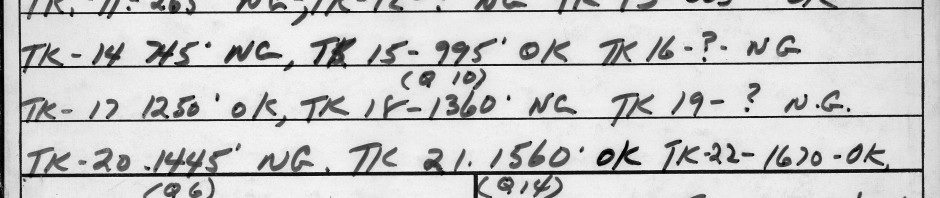 TK-14 745' NG, TK 15-995' OK TK 16-?- NG
(Q 10)
TK-17 1250' OK, TK 18-1360' NG TK 19-? N.G.
TK-20.1445' NG. TK 21.1560' OK TK-22-1670-OK,
(Q6) (Q14)